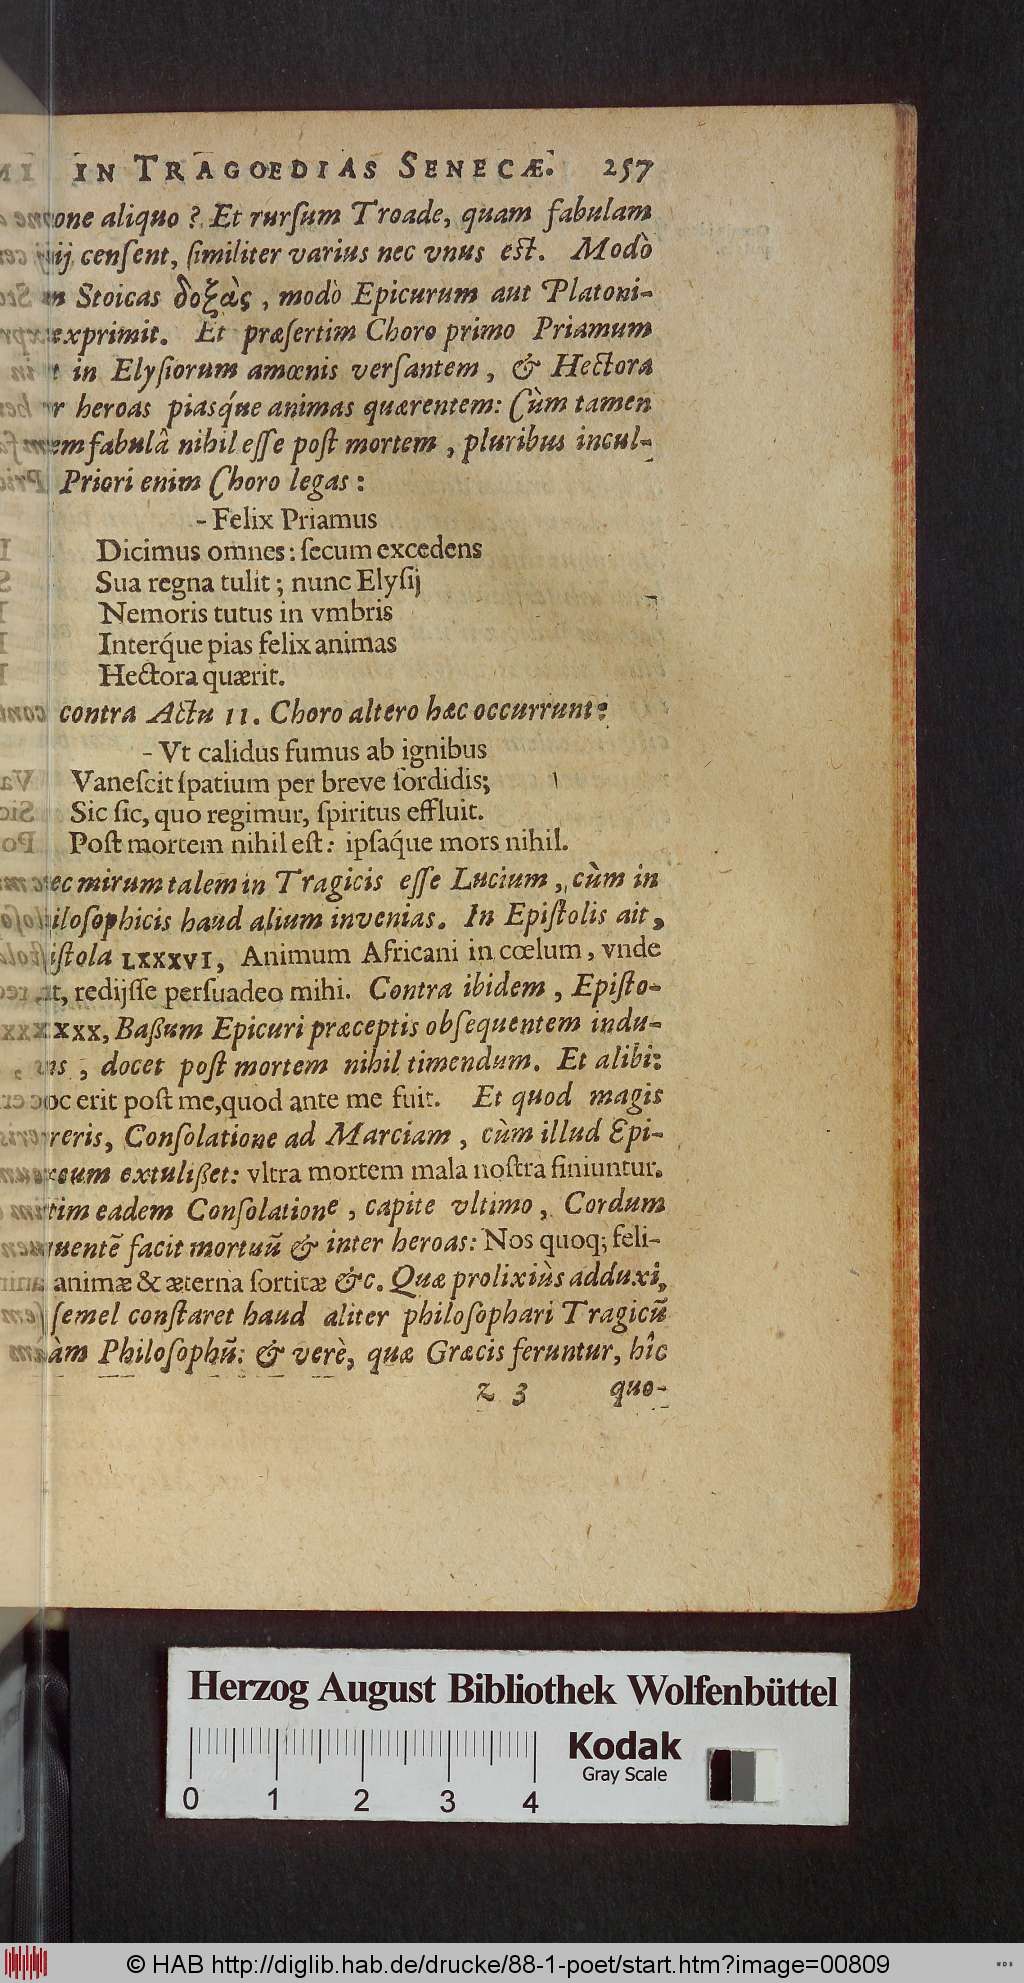 IN TRAGOEDIAS SENECÆ. 257
one aliquo? Et rurſum Troade, quam fabulam
ij cenſent, ſimiliter varius nec vnus eſt. Modò
Stoicas δοξὰς, modò Epicurum aut Platoni-
exprimit. Et præſertim Choro primo Priamum
in Elyſiorum amœnis verſantem, & Hectora
r heroas piasq́ue animas quærentem: Cùm tamen
em fabulâ nihil eſſe poſt mortem, pluribus incul-
Priori enim Choro legas:
- Felix Priamus
Dicimus omnes: ſecum excedens
Sua regna tulit; nunc Elyſij
Nemoris tutus in vmbris
Interq́ue pias felix animas
Hectora quærit.
contra Actu II. Choro altero hæc occurrunt:
- Vt calidus fumus ab ignibus
Vaneſcit ſpatium per breve ſordidis;
Sic ſic, quo regimur, ſpiritus effluit.
Poſt mortem nihil eſt: ipſaq́ue mors nihil.
ec mirum talem in Tragicis eſſe Lucium, cùm in
iloſophicis haud alium invenias. In Epiſtolis ait,
iſtola LXXXVI, Animum Africani in cœlum, vnde
t, redijſſe perſuadeo mihi. Contra ibidem, Epiſto-
XXX, Baßum Epicuri præceptis obſequentem indu-
ns, docet poſt mortem nihil timendum. Et alibi:
oc erit poſt me, quod ante me fuit. Et quod magis
reris, Conſolatione ad Marciam, cùm illud Epi-
eum extulißet: vltra mortem mala noſtra finiuntur.
tim eadem Conſolatione, capite vltimo, Cordum
uentẽ facit mortuũ & inter heroas: Nos quoq; feli-
animæ & æterna ſortitæ &c. Quæ prolixiùs adduxi,
ſemel conſtaret haud aliter philoſophari Tragicũ
àm Philoſophũ: & verè, quæ Græcis feruntur, hîc
z 3 quo-
Herzog August Bibliothek Wolfenbüttel
0 1 2 3 4
Kodak
Gray Scale
© HAB http://diglib.hab.de/drucke/88-1-poet/start.htm?image=00809